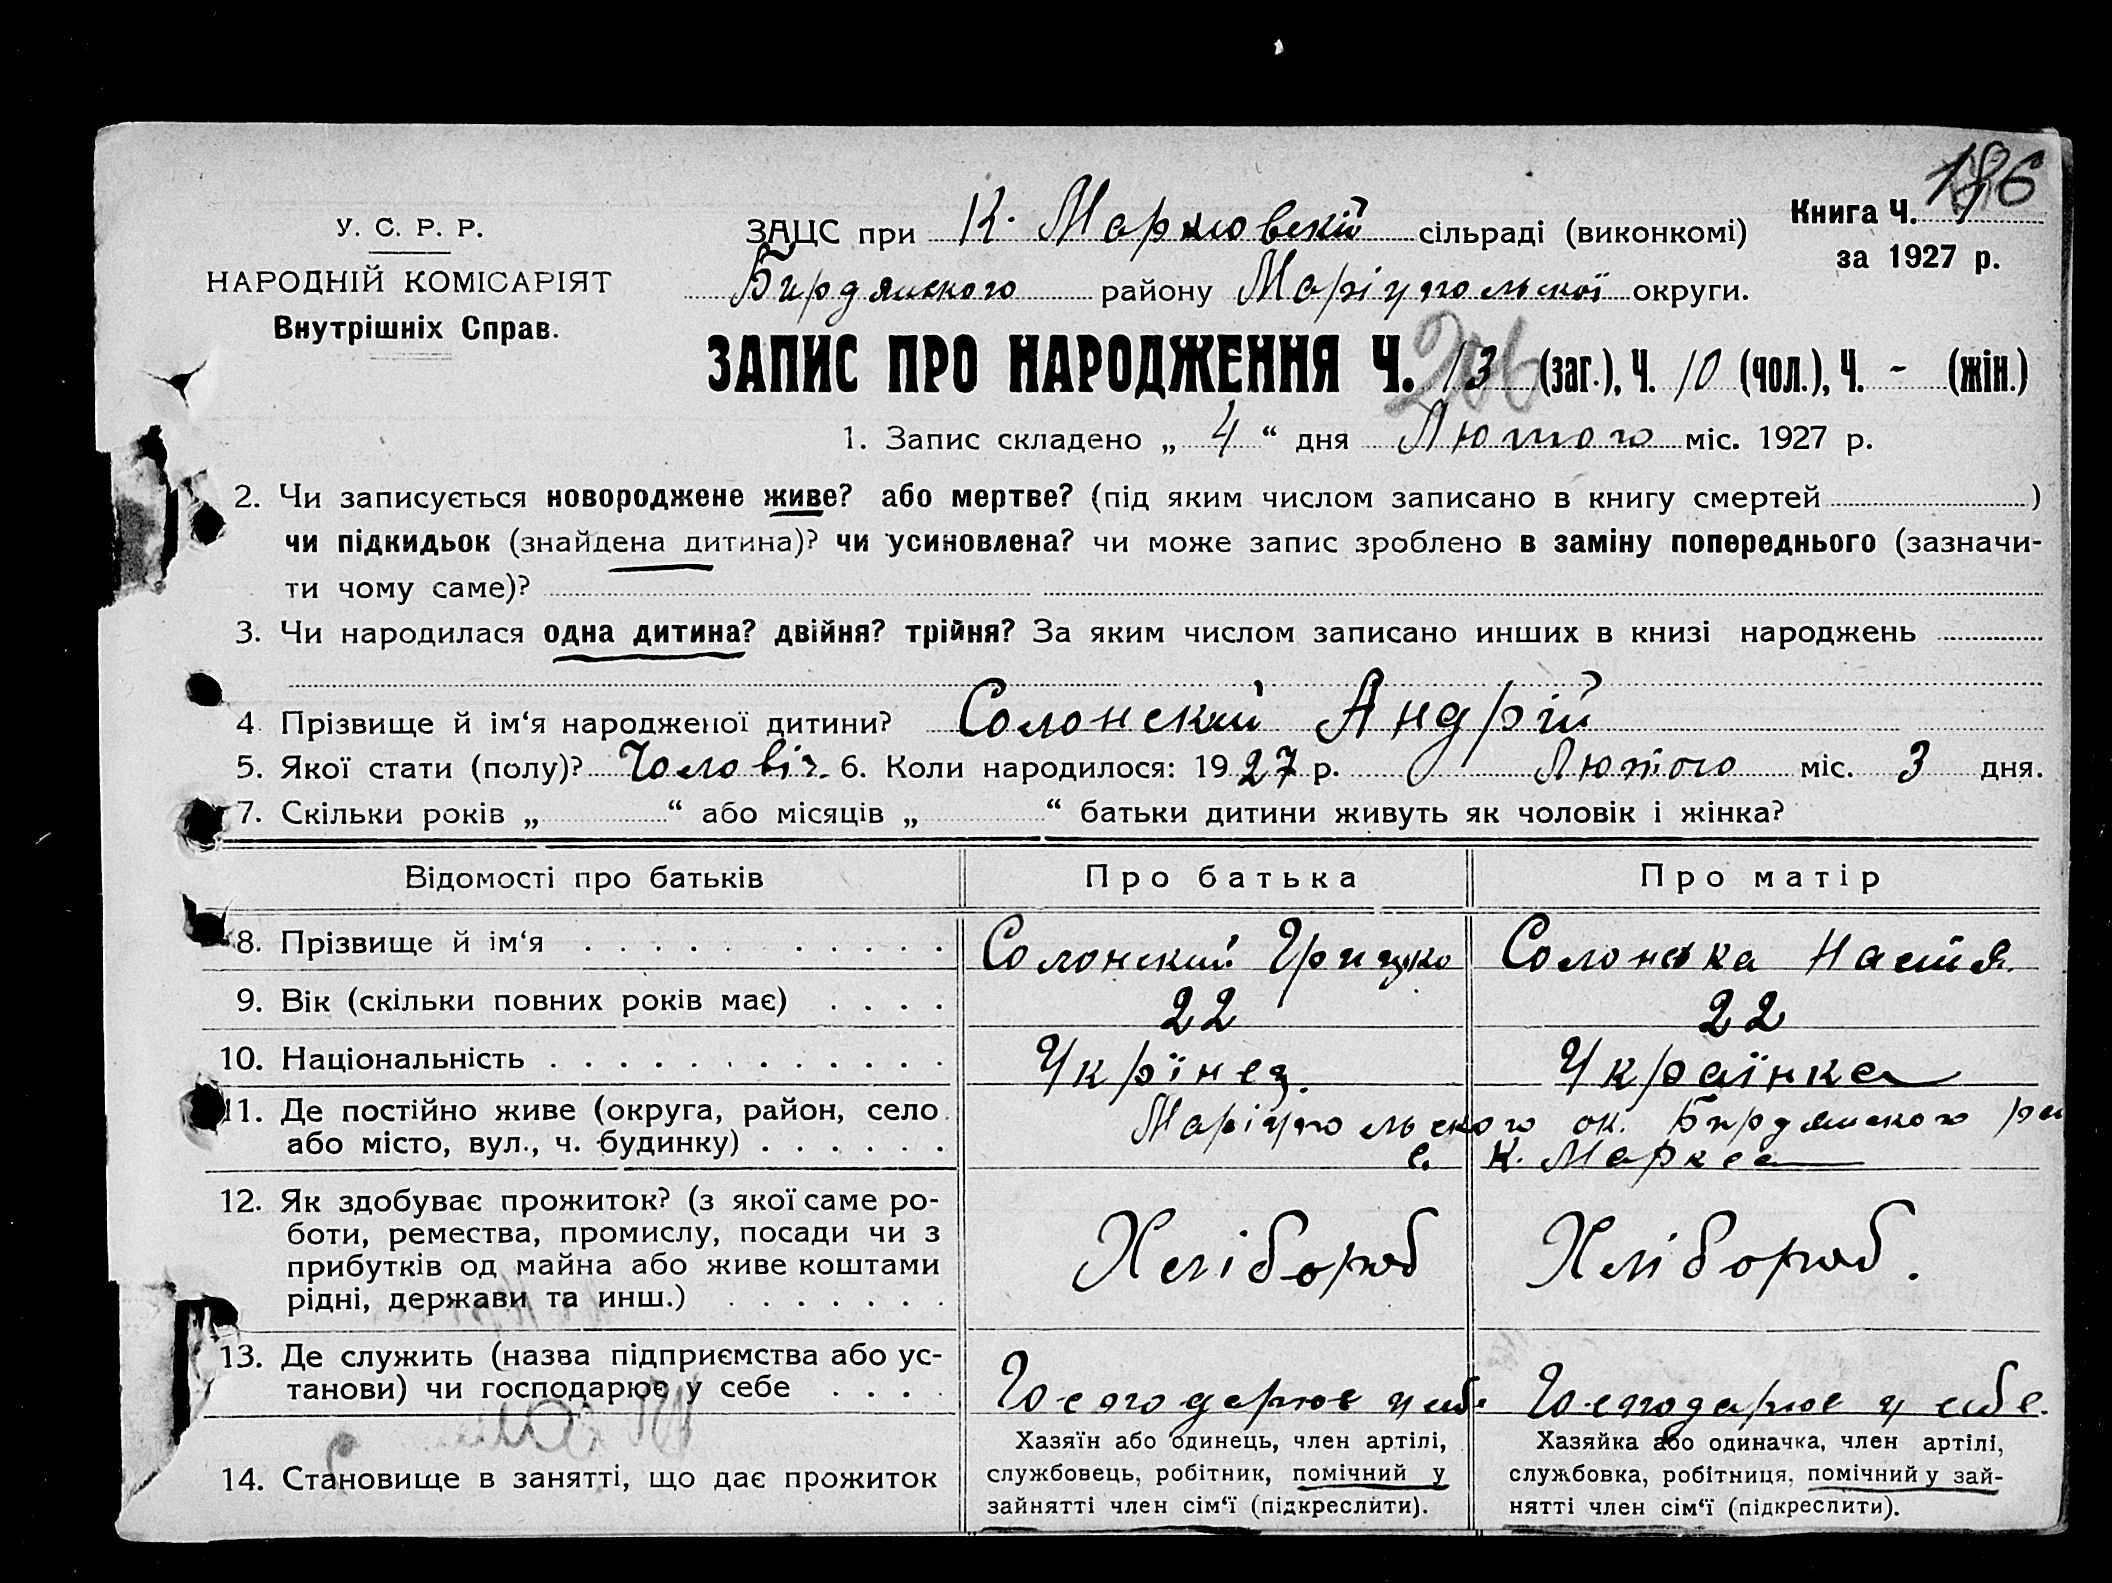 186
У. С. Р. Р.
НАРОДНІЙ КОМІСАРІЯТ
Внутрішніх Справ.
ЗАЦС при К. Марксовскій сільраді (виконкомі)
Книга Ч. 1
за 1927 р.
Бирдянского району Маріупольскої округи.
ЗАПИС ПРО НАРОДЖЕННЯ Ч. 13 (заг.), Ч. 10 (чол.), Ч. - (жін.)
206
1. Запис складено „ 4 “ дня Лютого міс. 1927 р.
2. Чи записується новороджене живе? або мертве? (під яким числом записано в книгу смертей )
чи підкидьок (знайдена дитина)? чи усиновлена? чи може запис зроблено в заміну попереднього (зазначи-
ти чому саме)?
3. Чи народилася одна дитина? двійня? трійня? За яким числом записано инших в книзі народжень
4 Прізвище й ім‘я народженої дитини? Солонский Андрій
5. Якої стати (полу)? Чоловіч. 6. Коли народилося: 1927 р. Лютого міс. 3 дня.
7. Скільки років „ “ або місяців „ “ батьки дитини живуть як чоловік і жінка?
Відомості про батьків Про батька Про матір
8. Прізвище й ім‘я . . . . . . . . . . . Солонский Грицко Солонска Настя.
9. Вік (скільки повних років має) . . . . 22 22
10. Національність . . . . . . . . . . . . Укрїнец. Українка
11. Де постійно живе (округа, район, село Маріупольского ок. Бирдянского ра
або місто, вул., ч. будинку) . . . . . . с. К. Маркса
12. Як здобуває прожиток? (з якої саме ро-
боти, ремества, промислу, посади чи з
прибутків од майна або живе коштами
рідні, держави та инш.) . . . . . . . Хлібороб Хлібороб.
13. Де служить (назва підприємства або ус-
танови) чи господарює у себе . . . . Господарює у себе Господарює у себе.
14. Становище в занятті, що дає прожиток
Хазяїн або одинець, член артілі,
службовець, робітник, помічний у
зайнятті член сім‘ї (підкреслити).
Хазяйка або одиначка, член артілі,
службовка, робітниця, помічний у зай-
нятті член сім‘ї (підкреслити).